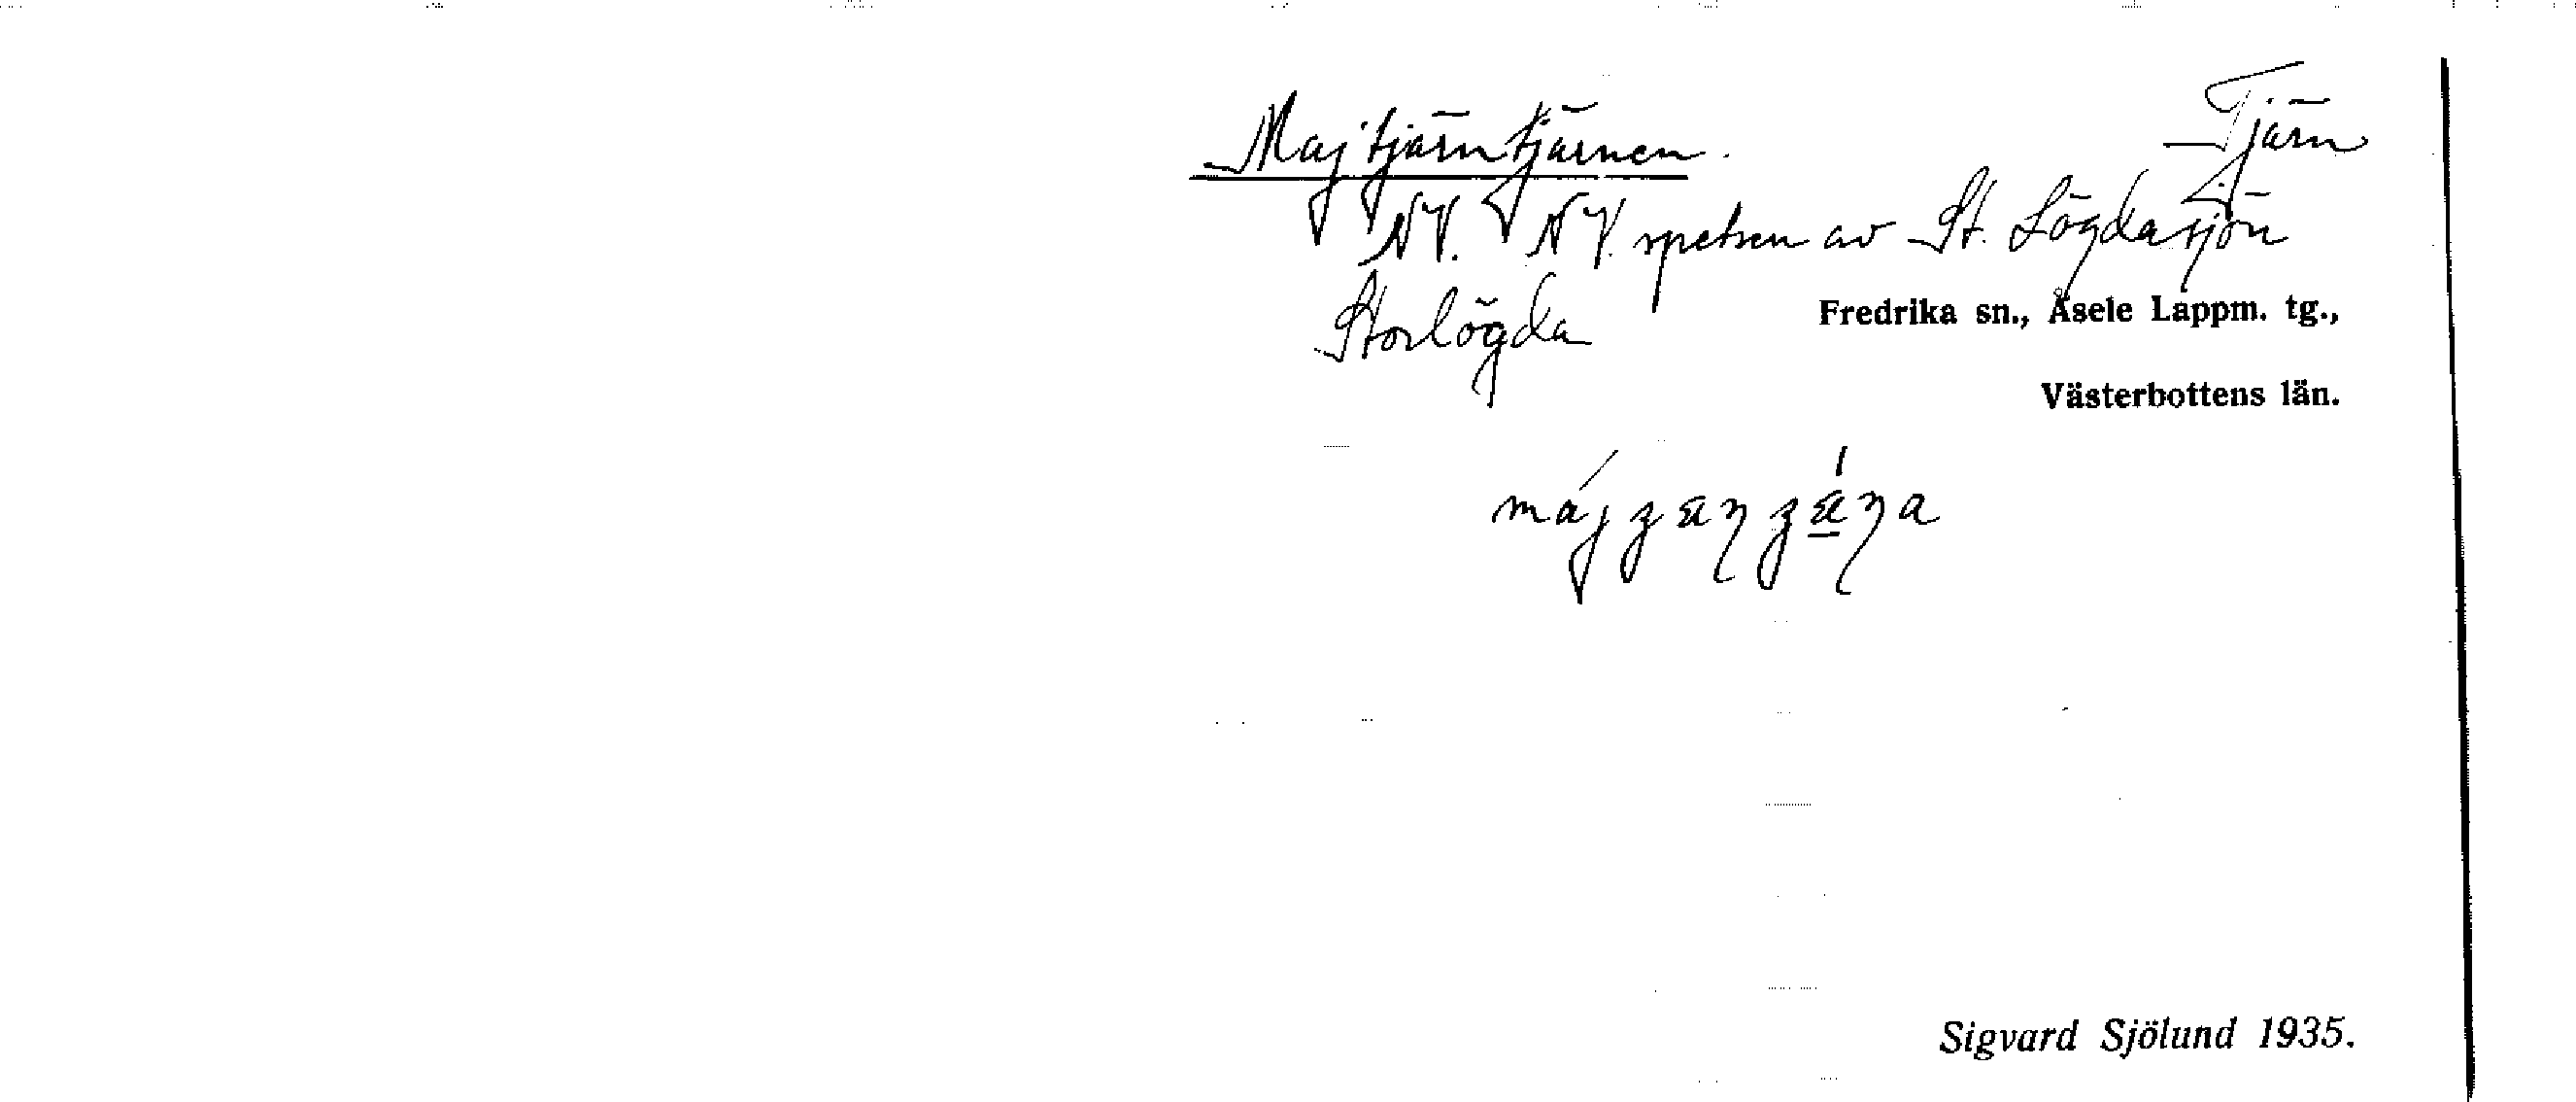 Majtjärntjärnen. Tjärn
NV. NV. spetsen av St. Lögdasjön
Storlögda Fredrika sn., Åsele Lappm. tg.,
Västerbottens län.
Sigvard Sjölund 1935.